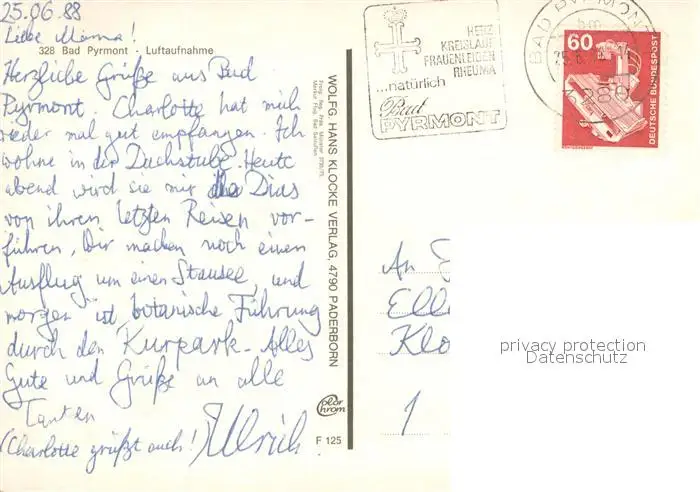 25.06.88
Liebe Mama!
328 Bad Pyrmont - Luftaufnahme
Herzliche Grüße aus Bad
Pyrmont. Charlotte hat mich
wieder mal gut empfangen. Ich
wohne in der Dachstube. Heute
abend wird sie mir Dias
von ihren letzten Reisen vor-
führen, Wir machen noch einen
Ausflug um einen Stausee, und
morgen ist botanische Führung
durch den Kurpark. Alles
Gute und Grüße an alle
Tanten
Ulrich
(Charlotte grüßt auch!)
WOLFG. HANS KLOCKE VERLAG, 4790 PADERBORN
F 125
HERZ
KREISLAUF
FRAUENLEIDEN
RHEUMA
...natürlich
Bad
PYRMONT
BAD PYRMONT
60
DEUTSCHE BUNDESPOST
An
Ell
Klo
1
privacy protection
Datenschutz